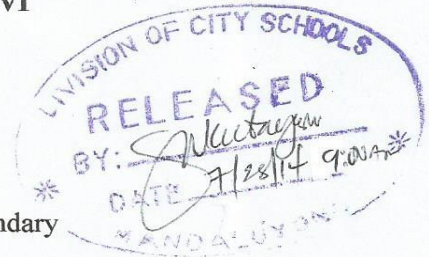 VI
DIVISION OF CITY SCHOOLS
RELEASED
BY:
DATE 7/28/14 9:00 AM
MANDALUYONG
ndary